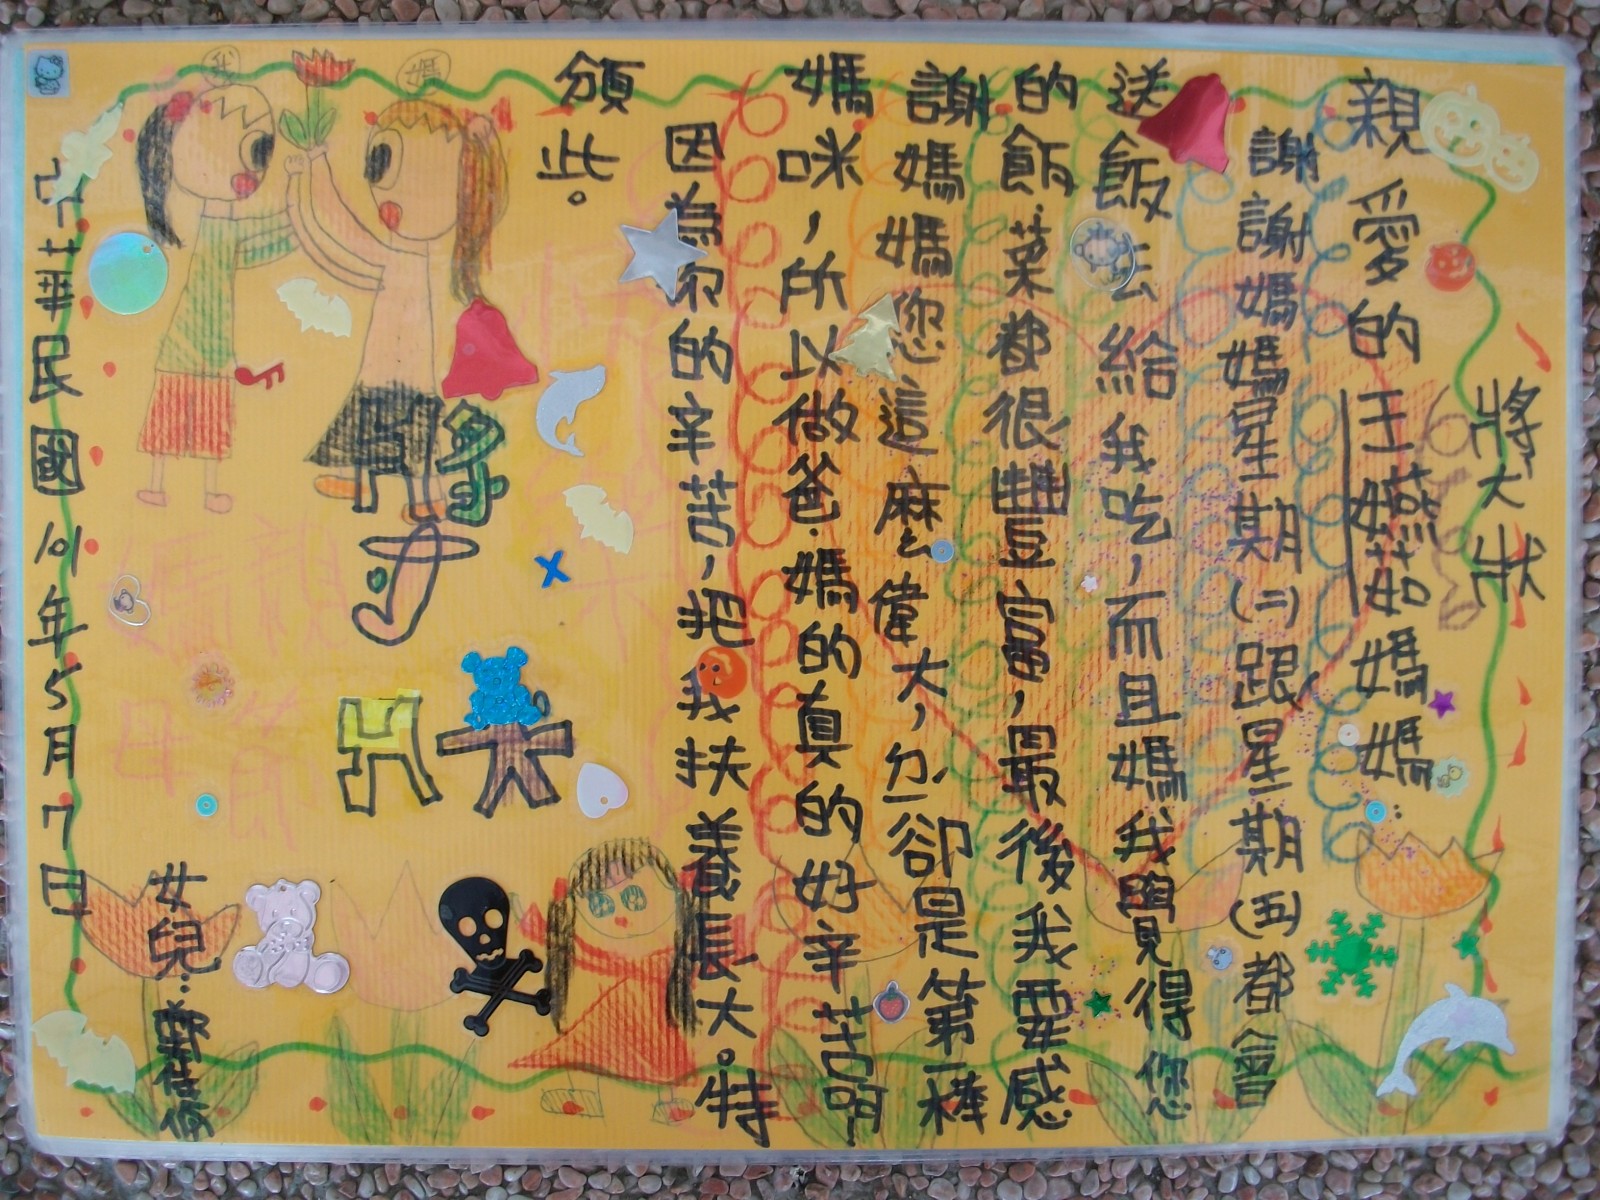 獎狀
親愛的王嬿茹媽媽
謝謝媽媽星期(二)跟星期(五)都會
送飯去給我吃，而且媽我覺得您
的飯.菜都很豐富，最後我要感
謝媽媽您這麼偉大，卻是第一棒
媽咪，所以做爸.媽的真的好辛苦啊
因為你的辛苦，把我扶養長大。特
頒此。
媽
我
女兒:鄭佳
中華民國101年5月7日